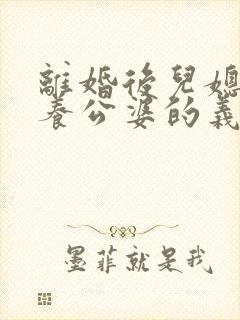 離婚後兒媳
養公婆的義
墨菲就是我